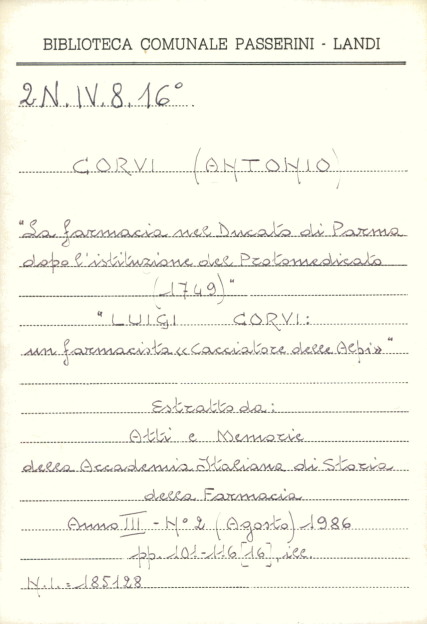 BIBLIOTECA COMUNALE PASSERINI - LANDI
2N.IV.8.16°
CORVI (ANTONIO)
"La farmacia nel Ducato di Parma
dopo l'istituzione del Protomedicato
(1749)"
"LUIGI CORVI:
un farmacista «Cacciatore delle Alpi»"
Estratto da:
Atti e Memorie
della Accademia Italiana di Storia
della Farmacia
Anno III - N° 2 (Agosto) 1986
pp. 101-116 [16], ill.
N.I. = 185128